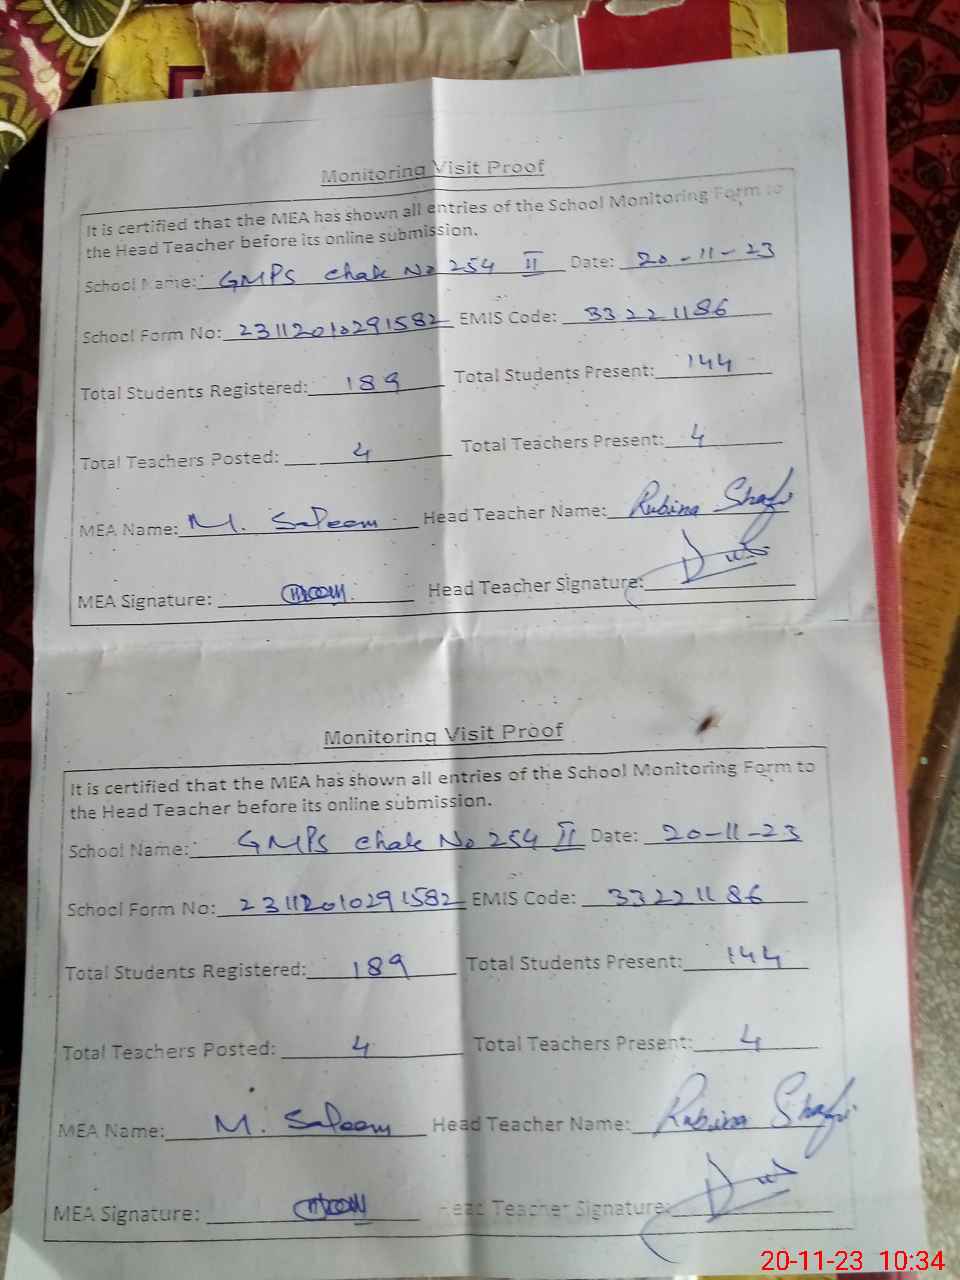 Monitoring Visit Proof
It is certified that the MEA has shown all entries of the School Monitoring Form to
the Head Teacher before its online submission.
School Name: GMPS Chak No 254 II Date: 20-11-23
School Form No: 23112010291582 EMIS Code: 33221186
Total Students Registered: 189 Total Students Present: 144
Total Teachers Posted: 4 Total Teachers Present: 4
MEA Name: M. Saleem Head Teacher Name: Rubina Shafi
MEA Signature: Head Teacher Signature:
Monitoring Visit Proof
It is certified that the MEA has shown all entries of the School Monitoring Form to
the Head Teacher before its online submission.
School Name: GMPS Chak No 254 II Date: 20-11-23
School Form No: 23112010291582 EMIS Code: 33221186
Total Students Registered: 189 Total Students Present: 144
Total Teachers Posted: 4 Total Teachers Present: 4
MEA Name: M. Saleem Head Teacher Name: Rubina Shafi
MEA Signature: Head Teacher Signature:
20-11-23 10:34